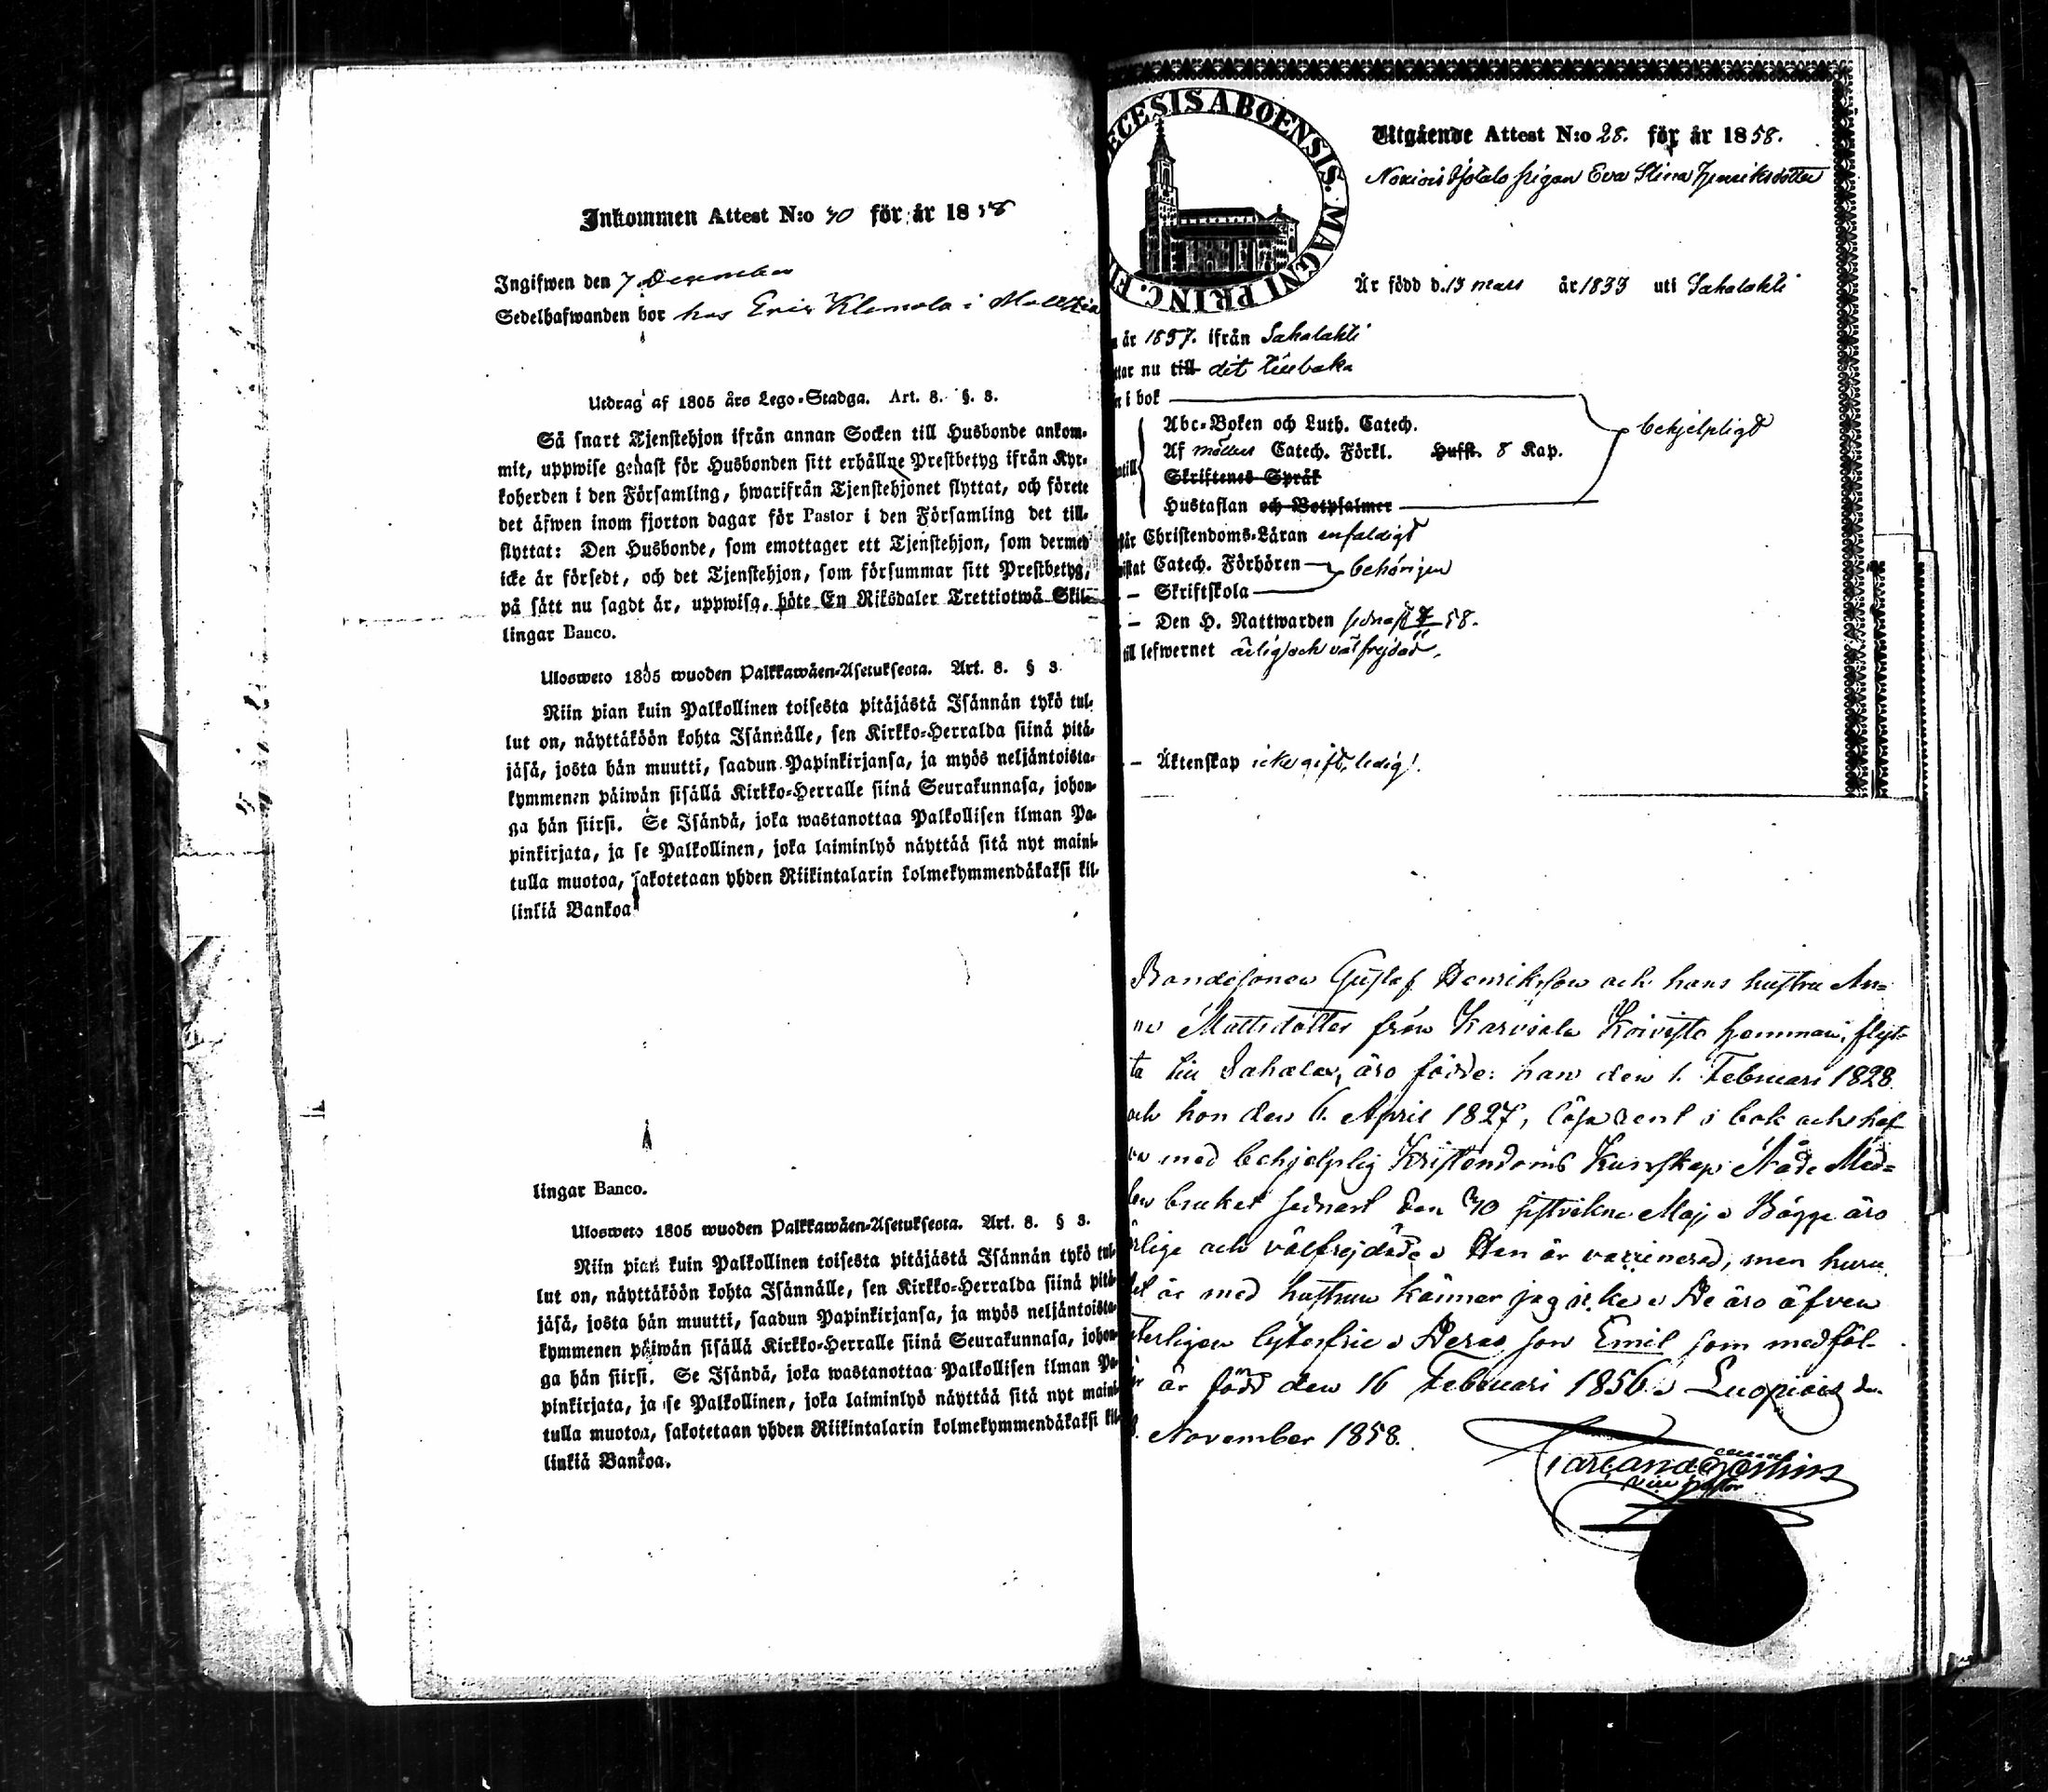 Inkommen Attest N:o 40 för år 1858
Ingifwen den 7 December
Sedelhafwanden bor hos Eric Klemola i
Utdrag af 1805 års Lego-Stadga. Art. 8. §. 3.
Så snart Tjenstehjon ifrån annan Socken till Husbonde ankom-
mit, uppwise genast för Husbonden sitt erhållne Prestbetyg ifrån Kyr-
koherden i den Församling, hwarifrån Tjenstehjonet flyttat, och förete
det äfwen inom fjorton dagar för Pastor i den Församling det till-
flyttat: Den Husbonde, som emottager ett Tjenstehjon, som dermed
icke är försedt, och det Tjenstehjon, som försummar sitt Prestbetyg,
på sätt nu sagdt är, uppwisa, böte En Riksdaler Trettiotwå Skil-
lingar Banco.
Ulosweto 1805 wuoden Palkkawäen-Asetuksesta. Art. 8. § 3.
Niin pian kuin Palkollinen toisesta pitäjästä Isännän tykö tul-
lut on, näyttäköön kohta Isännälle, sen Kirkko-Herralda siinä pitä-
jäsä, josta hän muutti, saadun Papinkirjansa, ja myös neljäntoista-
kymmenen päiwän sisällä Kirkko-Herralle siinä Seurakunnasa, johon-
ga hän siirsi. Se Isändä, joka wastanottaa Palkollisen ilman Pa-
pinkirjata, ja se Palkollinen, joka laiminlyö näyttää sitä nyt maini-
tulla muotoa, sakotetaan yhden Riikintalarin kolmekymmendäkaksi kil-
linkiä Bankoa
lingar Banco.
Ulosweto 1805 wuoden Palkkawäen-Asetuksesta. Art. 8. § 3.
Niin pian kuin Palkollinen toisesta pitäjästä Isännän tykö tul-
lut on, näyttäköön kohta Isännälle, sen Kirkko-Herralda siinä pitä-
jäsä, josta hän muutti, saadun Papinkirjansa, ja myös neljäntoista-
kymmenen päiwän sisällä Kirkko-Herralle siinä Seurakunnasa, johon-
ga hän siirsi. Se Isändä, joka wastanottaa Palkollisen ilman Pa-
pinkirjata, ja se Palkollinen, joka laiminlyö näyttää sitä nyt maini-
tulla muotoa, sakotetaan yhden Riikintalarin kolmekymmendäkaksi kil-
linkiä Bankoa.
ECESIS ABOENSIS. MAGNI PRINC. FI
Utgående Attest N:o 28. för år 1858.
pigan Eva Stina Henriksdotter
Är född d. 13 mars år 1833 uti Sahalahti
år 1857. ifrån Sahalahti
ttar nu till dit tillbaka
n i bok
Abc-Boken och Luth. Catech. behjelpligt
Af möllers Catech. Förkl. Hufst. 8 Kap.
Skriftenes Språk
Hustaflan och Botpsalmer
står Christendoms-Läran enfaldigt
wistat Catech. Förhören behörigen
- Skriftskola
- Den H. Nattwarden sednast 58.
till lefwernet ärlig och välfrejdad.
- Äktenskap icke gift, ledig!
Bondesonen Gustaf Henriksson och hans hustru An-
na Mattsdotter från Karviala Koivisto hemman, flyt-
ta till Sahalax, äro födde: han den 1. Februari 1828
och hon den 6. April 1827, läsa rent i bok och haf
va med behjelplig Kristendoms Kunskap Nåde Med-
len brukat sednast den 30 sistvekne Maj. Bägge äro
ärlige och välfrejdade. Han är vaccinerad, men huru
det är med hustrun känner jag icke. De äro äfven
lyterfrie. Deras son Emil som medföl-
jer är född den 16 Februari 1856. Luopiois den
November 1858.
vice pastor